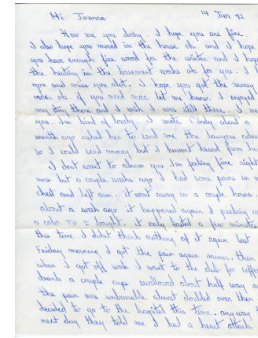 14 Jan 92
Hi Joanna
How are you doing. I hope you are fine.
I also hope you moved in the house ok. and I hope
you have enough fire wood for the winter and I hope
the heating in the basement works ok for you. I
you and miss you alot. I hope you got the money
ok. if you need more let me know. I enjoyed
my time there and I wish I was still there
you. Im kind of lonely. I wrote Andy about a
month ago asked him to send me the
so I could send money but I havent heard from
I dont want to you Im feeling fine right
now but a couple weeks ago I had some pains in my
chest and left arm. it went away in a couple hours
about a week ago it happened again I
a I bought. it only lasted a few minutes
this time I didnt think nothing of it again last
Friday morning I got the pain again. then
when I got off work I went to the club for
drank a couple cups about half way
the pain was unbearable almost doubled over then
decided to go to the hospital this time. any way
next day they told me I had a heart attack